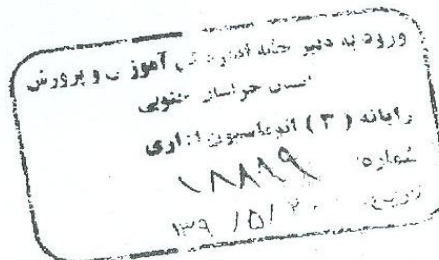 ورود به دبیرخانه آموزش و پرورش
استان خراسان جنوبی
رایانه ( ۳ ) اتوماسیون اداری
شماره: ۱۸۸۹۹
تاریخ: